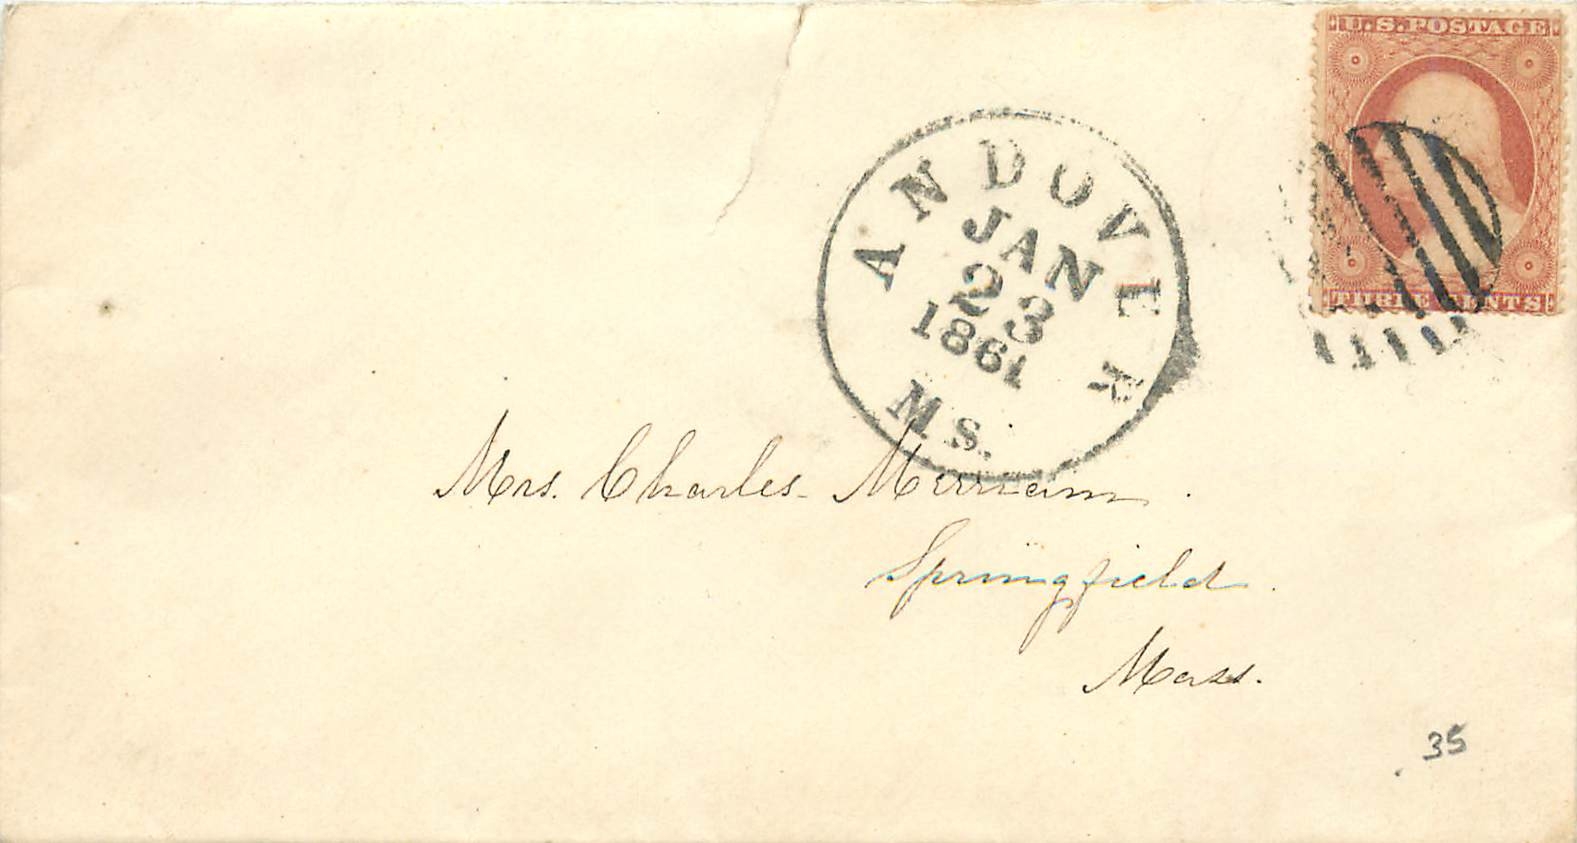 U.S. POSTAGE
THREE CENTS
ANDOVER
JAN
23
1861
MS.
Mrs. Charles Merriam.
Springfield.
Mass.
35